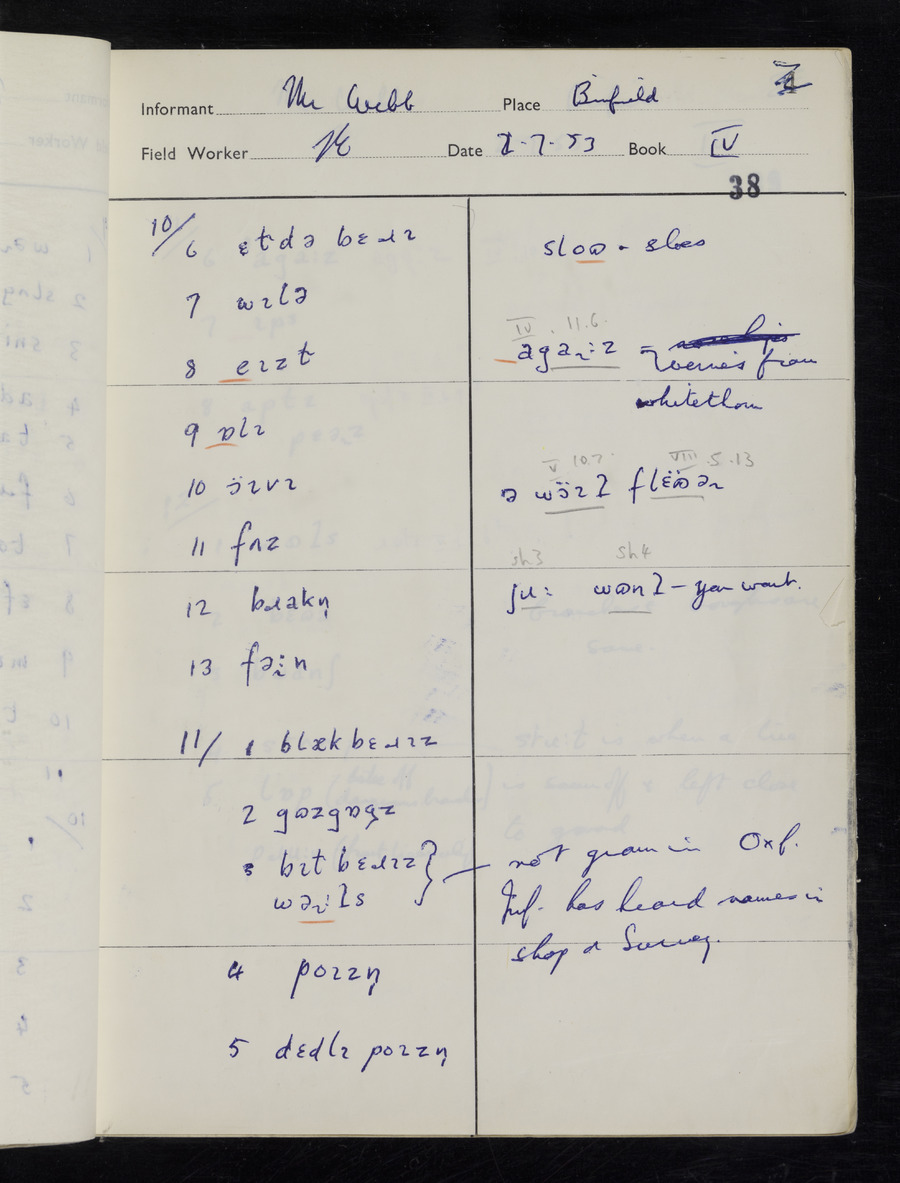 Informant Mr Webb Place Binfield
Field Worker Date 7-53 Book IV
38
10/
6 ɛɫdə bɛɹɪ
7 wɪlə
8 eɪzɫ
9 ɒlɪ
10 ɔ̈ɪvɪ
11 fʌz
12 bɹakn̩
13 fəɪːn
11/ 1 blækbɛɹɪz
2 gɷzgɒgz
3 bɪtbɛɹɪz
wəɪːɫs
4 pɔɪzn̩
5 dɛdlɪ pɔɪzn̩
sloɷ - sloes
IV . 11.6.
agaɪːz =
berries from
whitethorn
V 10.7 VIII.5.13
ə wɔ̈ɪɫ flɛ̈ɷəɪ
sh3 sh4
jɩː wɷnɫ - you want.
not grown in Oxf.
Inf. has heard names in
shop or Surrey.